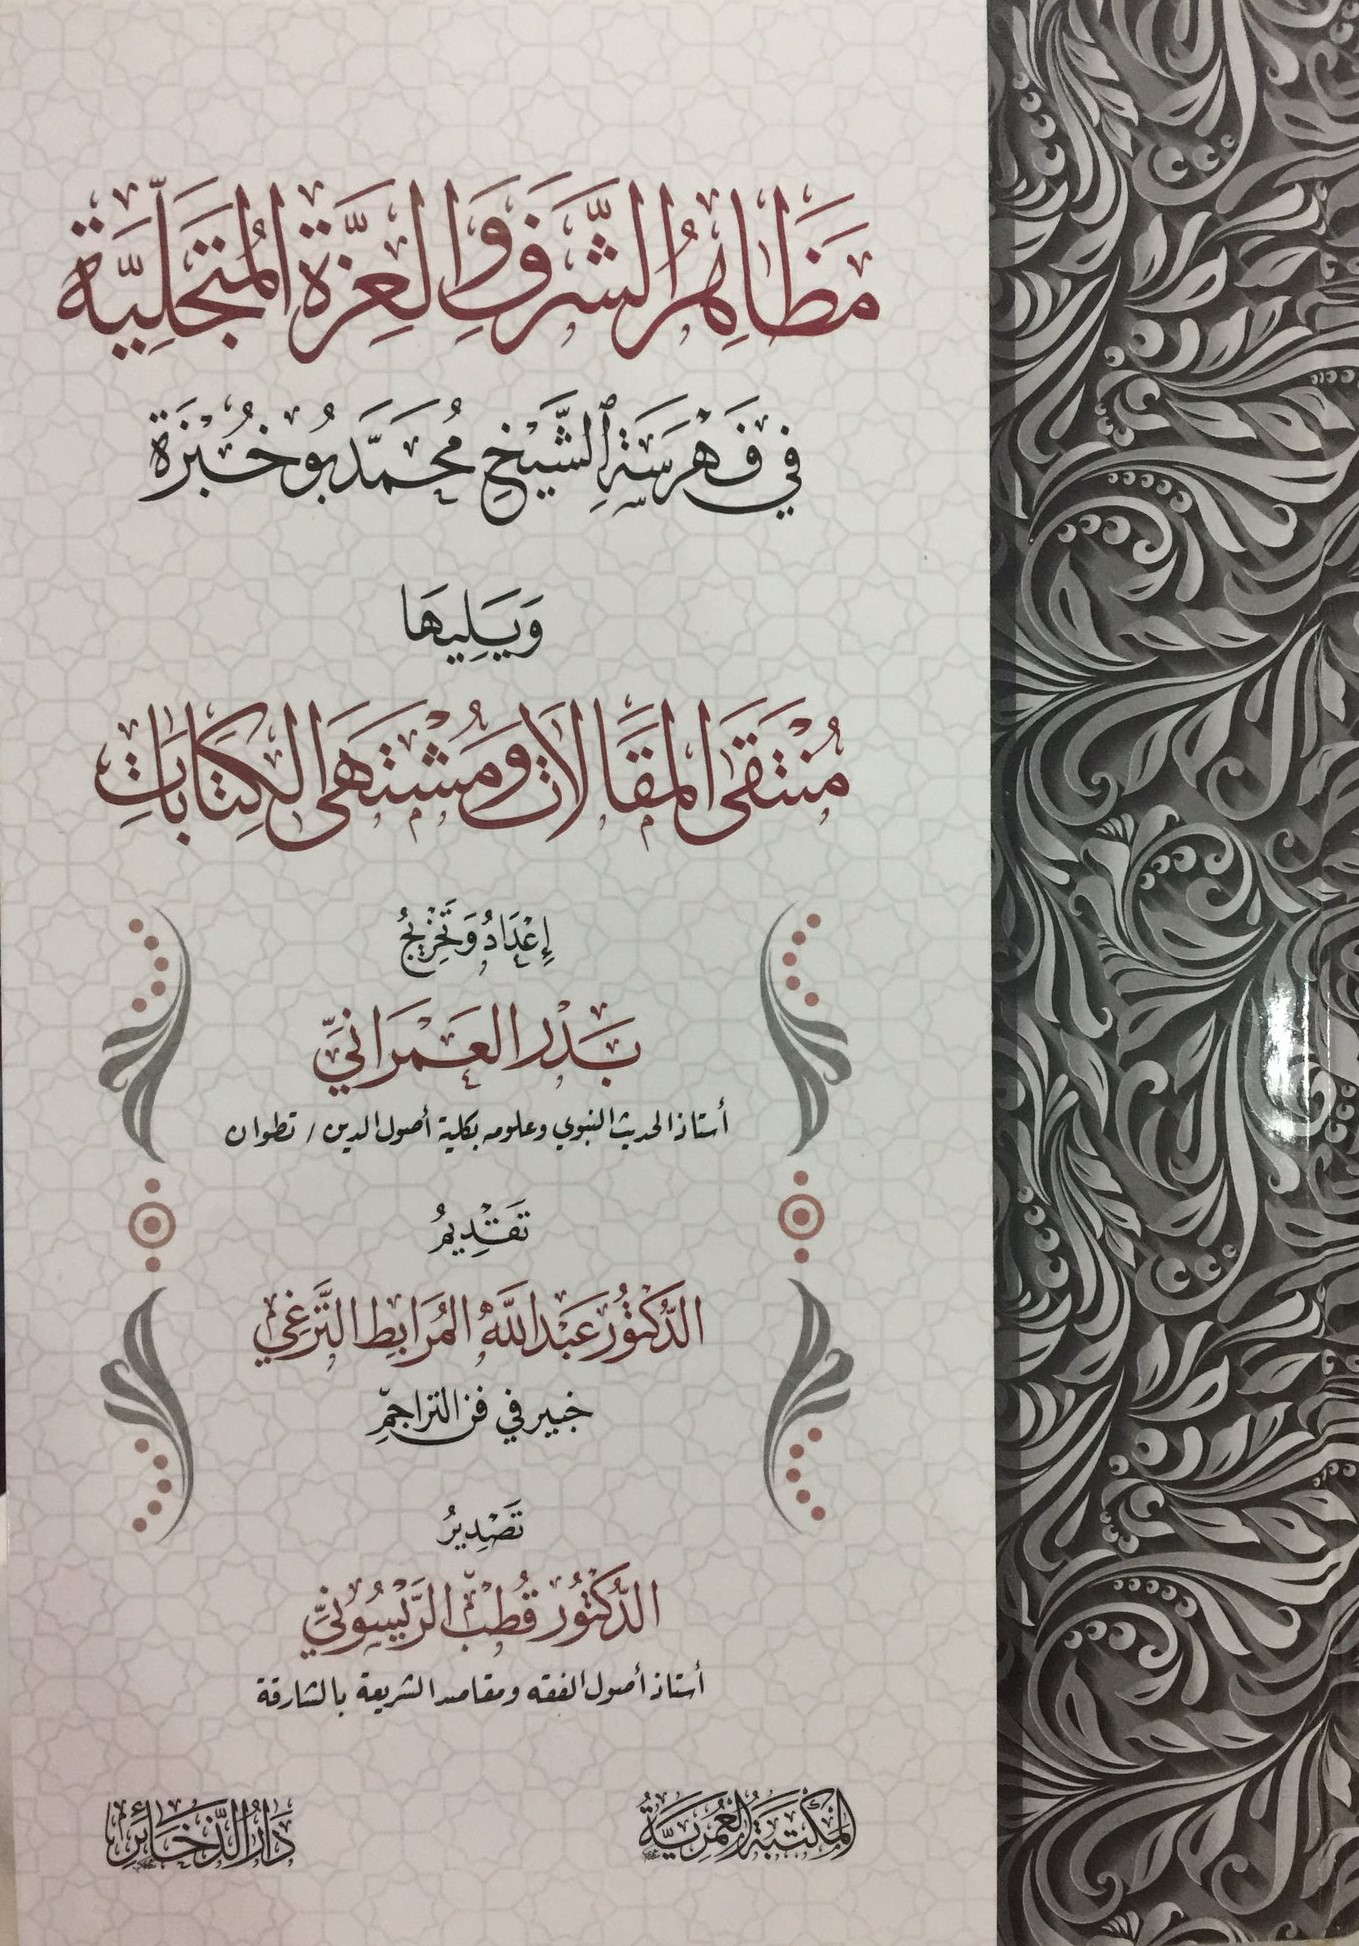 مَظَاهِرُ الشَّرَفِ وَالعِزَّةِ المُتَجَلِّيَة
فِي فَهْرَسَةِ الشَّيْخِ مُحَمَّد بُوخُبْزَة
وَيَلِيهَا
مُنْتَقَى المَقَالَاتِ وَمُشْتَهَى الكِتَابَاتِ
إِعْدَادُ وَتَخْرِيجُ
بَدْر العَمْرَانِيّ
أستاذ الحديث النبوي وعلومه بكلية أصول الدين / تطوان
تَقْدِيمُ
الدُّكْتُور عَبْد اللَّه المُرَابِط التَّرْغِي
خبير في فن التراجمِ
تَصْدِيرُ
الدُّكْتُور قُطْب الرَّيْسُونِيّ
أستاذ أصول الفقه ومقاصد الشريعة بالشارقة
المَكْتَبَةُ العُمَرِيَّةُ
دَارُ الذَّخَائِرِ